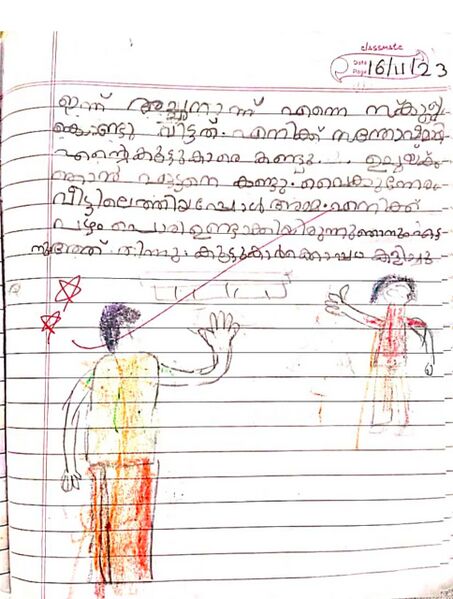 classmate
Date
Page 16/11/23
ഇന്ന് അച്ഛനാണ് എന്നെ സ്കൂളിൽ
കൊണ്ടു വിട്ടത്. എനിക്ക് സന്തോഷമായി
എന്റെ കൂട്ടുകാരെ കണ്ടു. ഉച്ചയ്ക്ക്
ഞാൻ ഏട്ടനെ കണ്ടു. വൈകുന്നേരം
വീട്ടിലെത്തിയപ്പോൾ അമ്മ എനിക്ക്
പഴം പൊരി ഉണ്ടാക്കിയിരുന്നു ഞാനും ഏട്ട
നുമത് തിന്നു. കൂട്ടുകാർക്കൊപ്പം കളിച്ചു